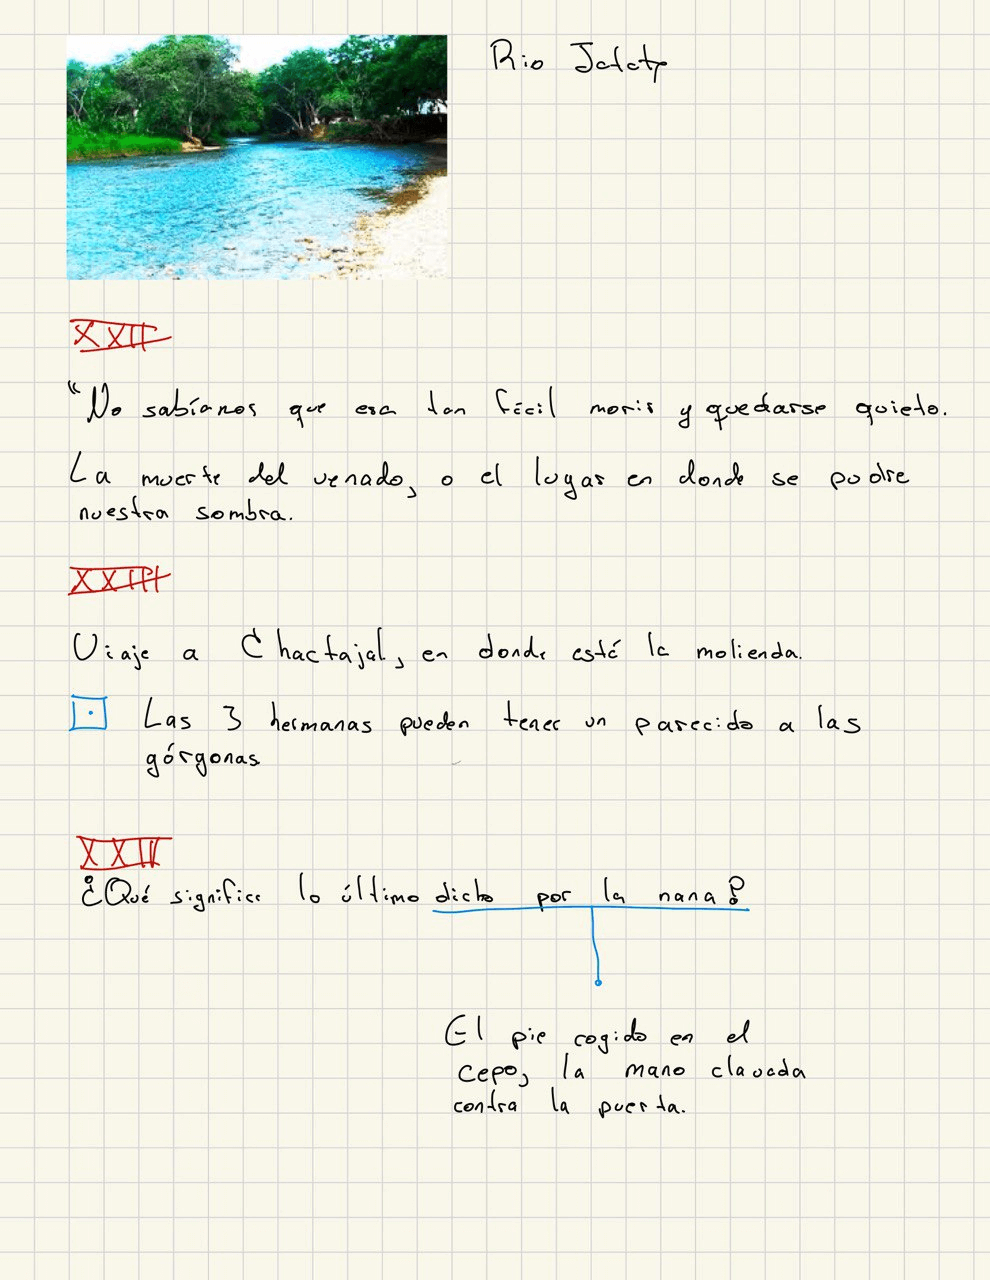 Rio Jatate
XXII
"No sabíamos que era tan fácil morir y quedarse quieto.
La muerte del venado, o el lugar en donde se pudre
nuestra sombra.
XXIII
Viaje a Chactajal, en donde está la molienda.
Las 3 hermanas pueden tener un parecido a las
górgonas
¿Qué significa lo último dicho por la nana?
El pie cogido en el
cepo, la mano clavada
contra la puerta.